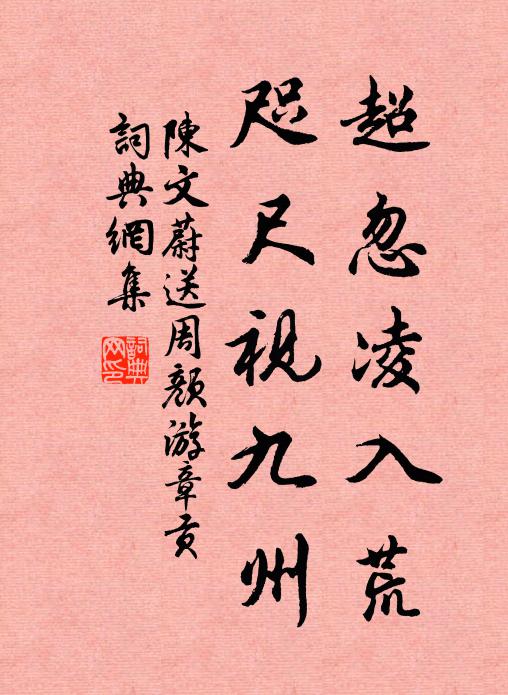 超忽凌入荒
咫尺視九州
陳文蔚送周顏游章貢
詞典網集
詞典
網印